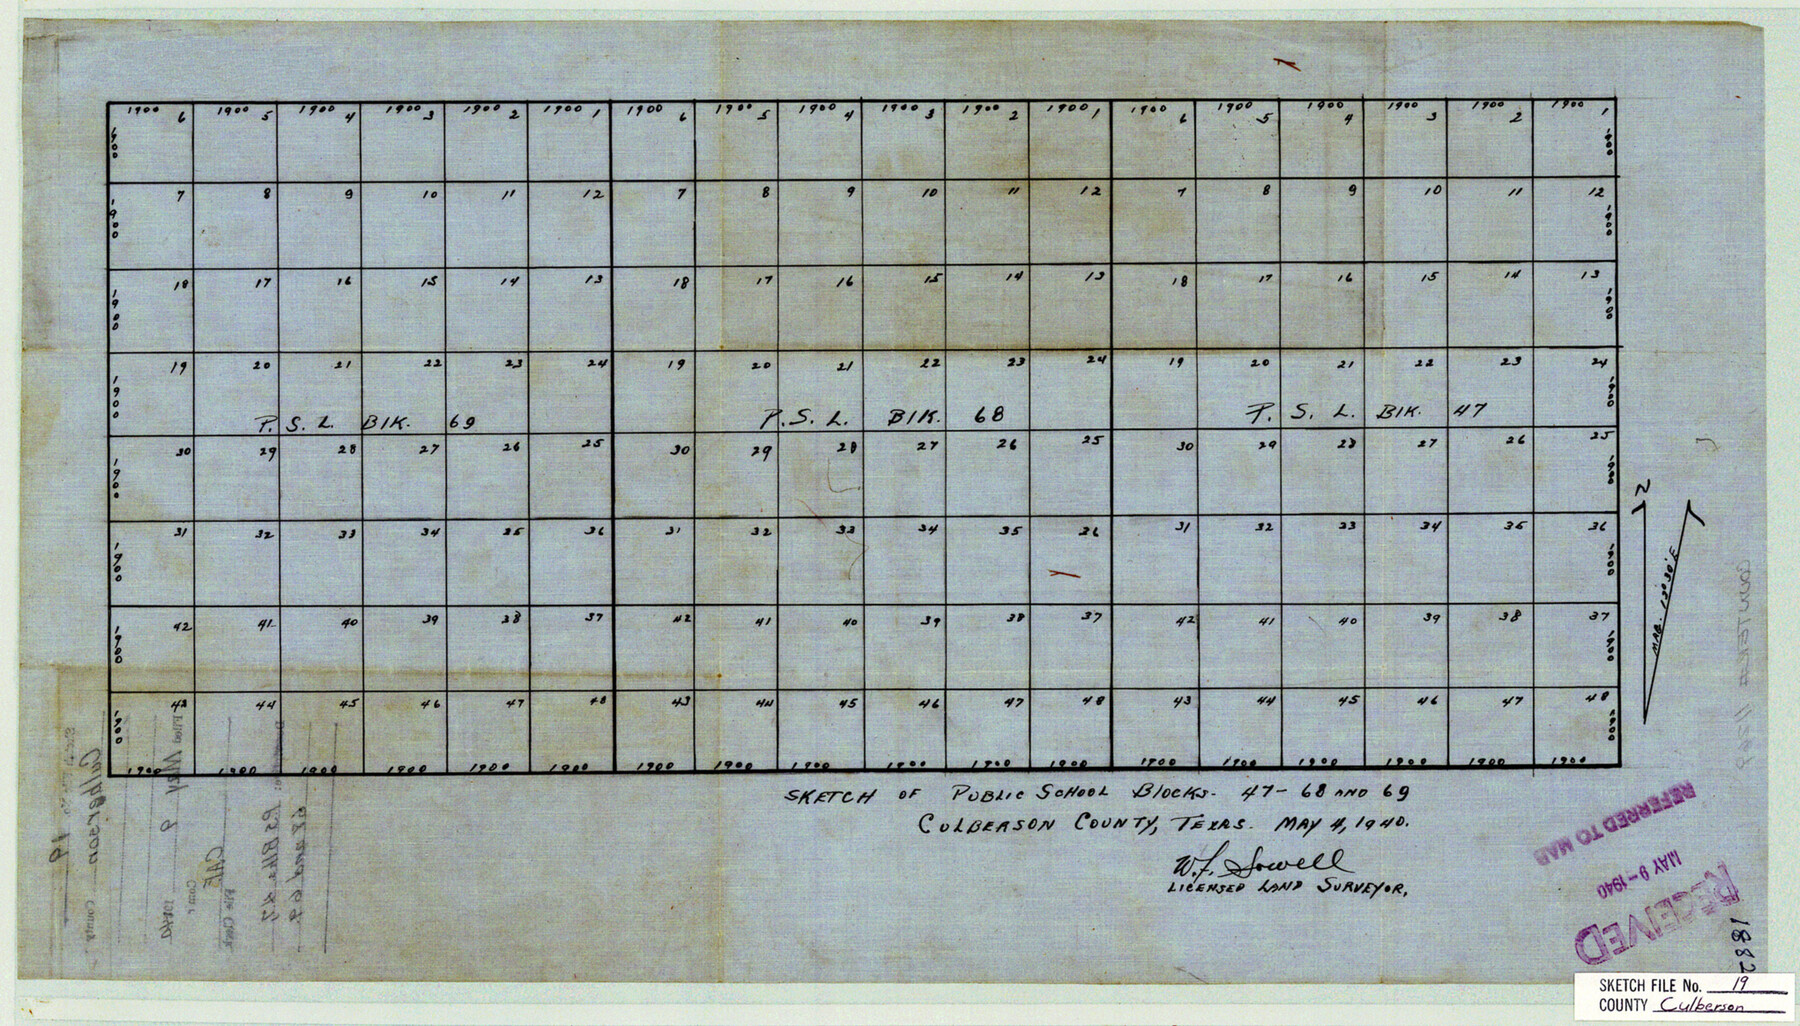 1900 1900 1900 1900 1900 1900 1900 1900 1900 1900 1900 1900 1900 1900 1900 1900 1900 1900
6 5 4 3 2 1 6 5 4 3 2 1 6 5 4 3 2 1
1900 1900
7 8 9 10 11 12 7 8 9 10 11 12 7 8 9 10 11 12
1900 1900
18 17 16 15 14 13 18 17 16 15 14 13 18 17 16 15 14 13
1900 1900
19 20 21 22 23 24 19 20 21 22 23 24 19 20 21 22 23 24
1900 1900
P. S. L. Blk. 69 P. S. L. Blk. 68 P. S. L. Blk. 47
30 29 28 27 26 25 30 29 28 27 26 25 30 29 28 27 26 25
1900 1900
31 32 33 34 35 36 31 32 33 34 35 36 31 32 33 34 35 36
1900 1900
42 41 40 39 38 37 42 41 40 39 38 37 42 41 40 39 38 37
1900 1900
43 44 45 46 47 48 43 44 45 46 47 48 43 44 45 46 47 48
1900 1900
1900 1900 1900 1900 1900 1900 1900 1900 1900 1900 1900 1900 1900 1900 1900 1900 1900 1900
N
MAG. 13° 30' E
SKETCH OF PUBLIC SCHOOL BLOCKS- 47-68 AND 69
CULBERSON COUNTY, TEXAS. MAY 4, 1940.
W.F. Sowell
LICENSED LAND SURVEYOR.
REFERRED TO MAP
MAY 9-1940
RECEIVED
COUNTER#
Culberson County
19
Filed May 9 1940
File Clerk
68 and 69
1882
SKETCH FILE No. 19
COUNTY Culberson